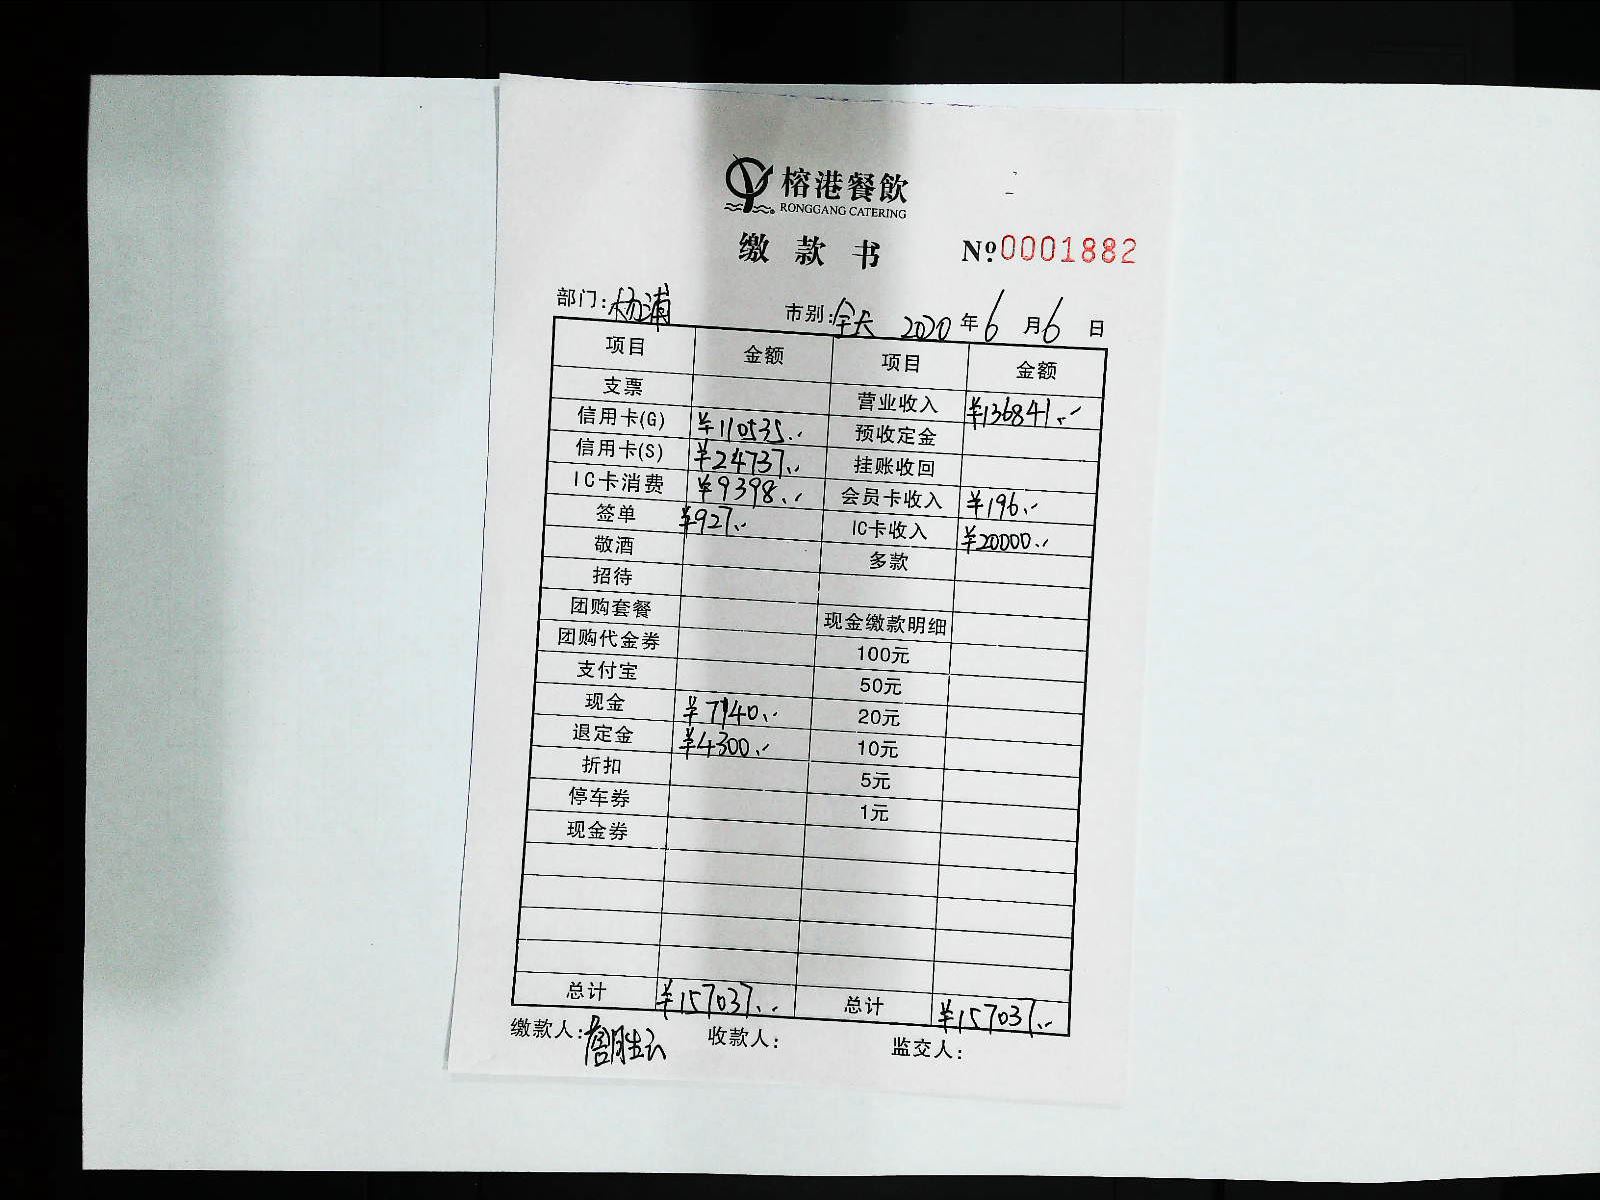 榕港餐飲
RONGGANG CATERING
缴款书 №0001882
部门:杨浦 市别:全天 2020年6月6日
项目 金额 项目 金额
支票 营业收入 ¥136841.-
信用卡(G) ¥110535.- 预收定金
信用卡(S) ¥24737.- 挂账收回
IC卡消费 ¥9398.- 会员卡收入 ¥196.-
签单 ¥927.- IC卡收入 ¥20000.-
敬酒 多款
招待
团购套餐 现金缴款明细
团购代金券 100元
支付宝 50元
现金 ¥7140.- 20元
退定金 ¥4300.- 10元
折扣 5元
停车券 1元
现金券
总计 ¥157037.- 总计 ¥157037.-
缴款人: 胜云 收款人: 监交人: